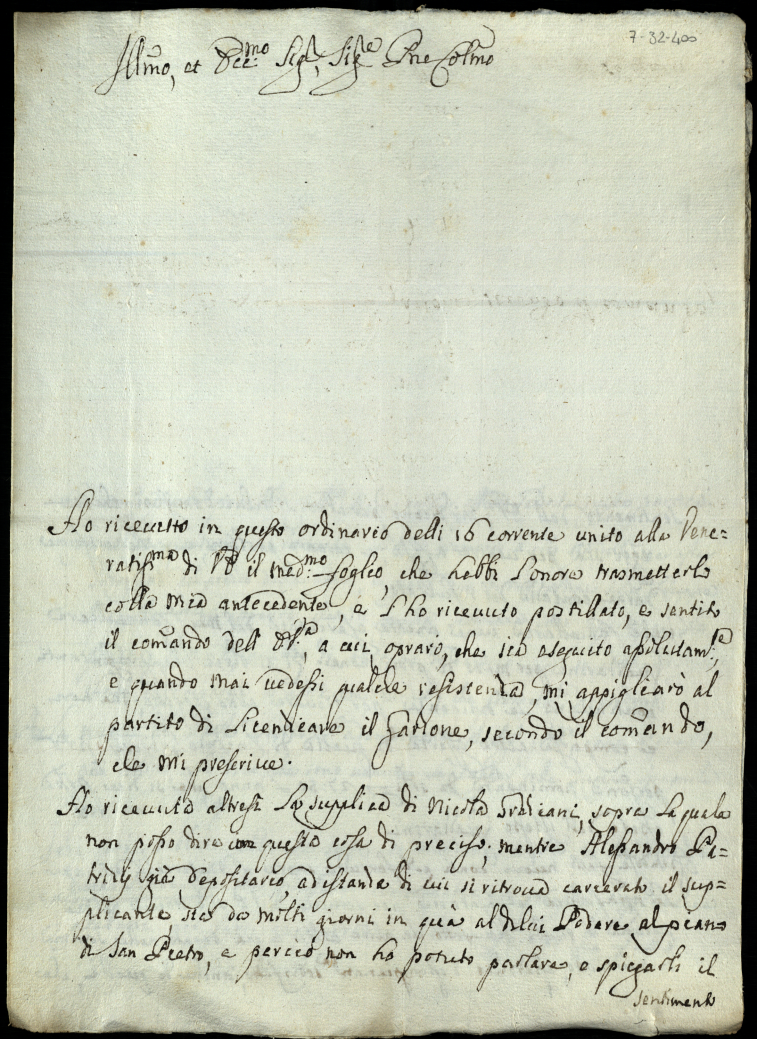 7-32-400
Illmo, et Ecc:mo Sigr, Sigre Pne Colmo
Ho ricevuto in questo ordinario delli 16 corrente unito alla Vene=
ratissma di VE il med:mo foglio, che hebbi l'onore trasmetterle
colla mia antecedente, e l'ho ricevuto postillato, e sentito
il comãndo dell' EV:ra, a cui opraró, che sia eseguito assolutam:te,
e quando mai vedessi qualche resistenza, mi appigliarò al
partito di Licenziare il Garzone, secondo il comãndo,
che mi prescrive.
Ho ricevuta altresi La supplica di Nicola Graziani, sopra La quale
non posso dire con questa cosa di preciso, mentre Alessandro Pa=
trizij già Depositario, ad istanza di cui si ritrova carcerato il sup=
plicante, sta da molti giorni in quà al di lui Podere al piano
di San Pietro, e perciò non ho potuto parlare, e spiegarli il
sentimento